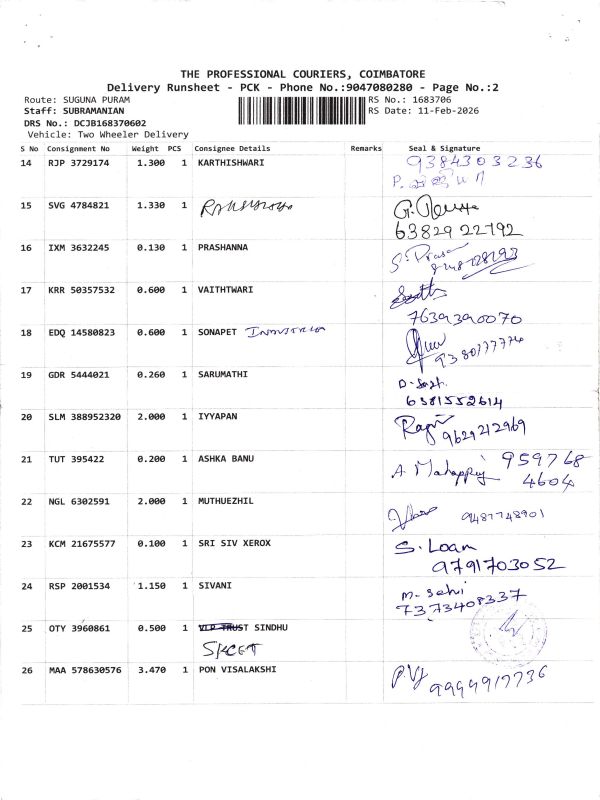 THE PROFESSIONAL COURIERS, COIMBATORE
Delivery Runsheet - PCK - Phone No.:9047080280 - Page No.:2
Route: SUGUNA PURAM RS No.: 1683706
Staff: SUBRAMANIAN RS Date: 11-Feb-2026
DRS No.: DCJB168370602
Vehicle: Two Wheeler Delivery
S No Consignment No Weight PCS Consignee Details Remarks Seal & Signature
14 RJP 3729174 1.300 1 KARTHISHWARI 9384303236
P.
15 SVG 4784821 1.330 1
63829 22792
16 IXM 3632245 0.130 1 PRASHANNA
17 KRR 50357532 0.600 1 VAITHTWARI
7639390070
18 EDQ 14580823 0.600 1 SONAPET
19 GDR 5444021 0.260 1 SARUMATHI
6381552614
20 SLM 388952320 2.000 1 IYYAPAN
9629212969
21 TUT 395422 0.200 1 ASHKA BANU 959768
4604
22 NGL 6302591 2.000 1 MUTHUEZHIL
9487748901
23 KCM 21675577 0.100 1 SRI SIV XEROX S. Loan
9791703052
24 RSP 2001534 1.150 1 SIVANI
7373408337
25 OTY 3960861 0.500 1 VLP TRUST SINDHU
SKCET
26 MAA 578630576 3.470 1 PON VISALAKSHI